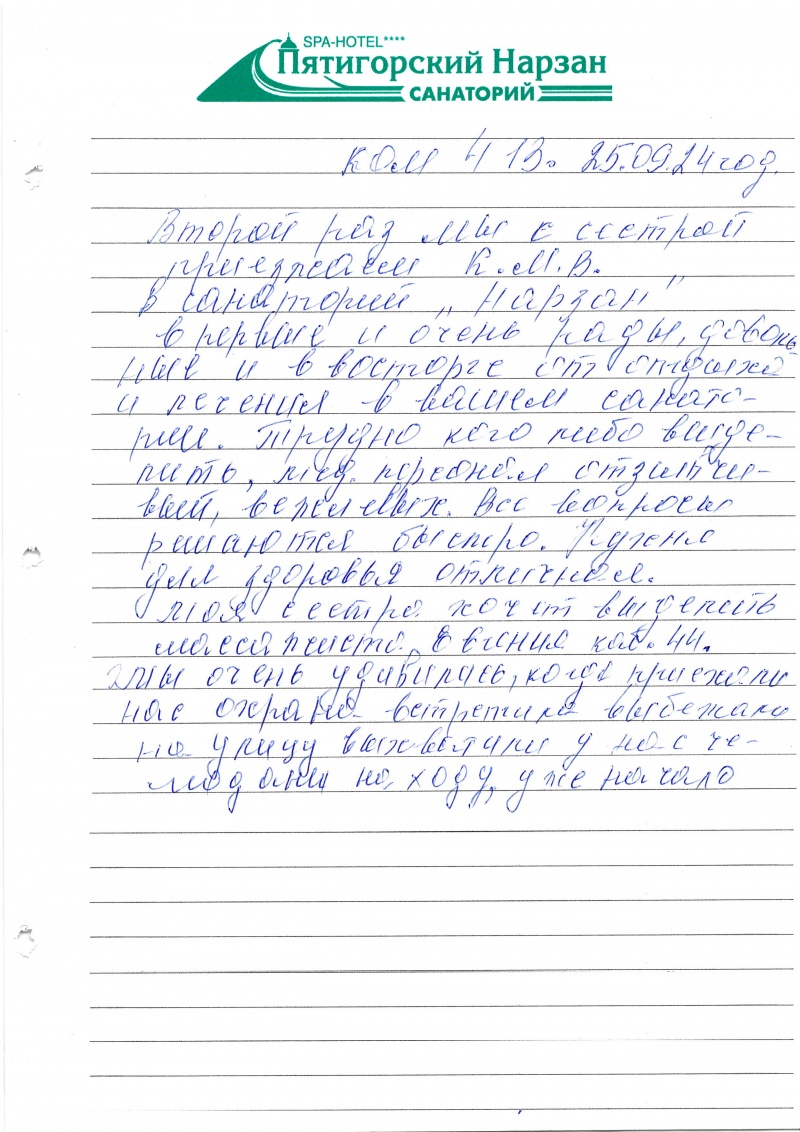 SPA-HOTEL****
Пятигорский Нарзан
САНАТОРИЙ
ком 413. 25.09.24 год.
Второй раз мы с сестрой
приезжаем К.М.В.
В санаторий „Нарзан"
впервые и очень рады, доволь-
ные и в восторге от отдыха
и лечения в вашем санато-
рии. Трудно кого либо выде-
лить, мед. персонал отзывчи-
вый,
Все вопросы
решаются быстро. Кухня
для здоровья отличная.
Моя сестра хочит выделить
массажиста Евгения каб. 44.
Мы очень удивились, когда приехали
нас охрана встретила выбежала
на улицу выхватили у нас че-
моданы на ходу, уже начало